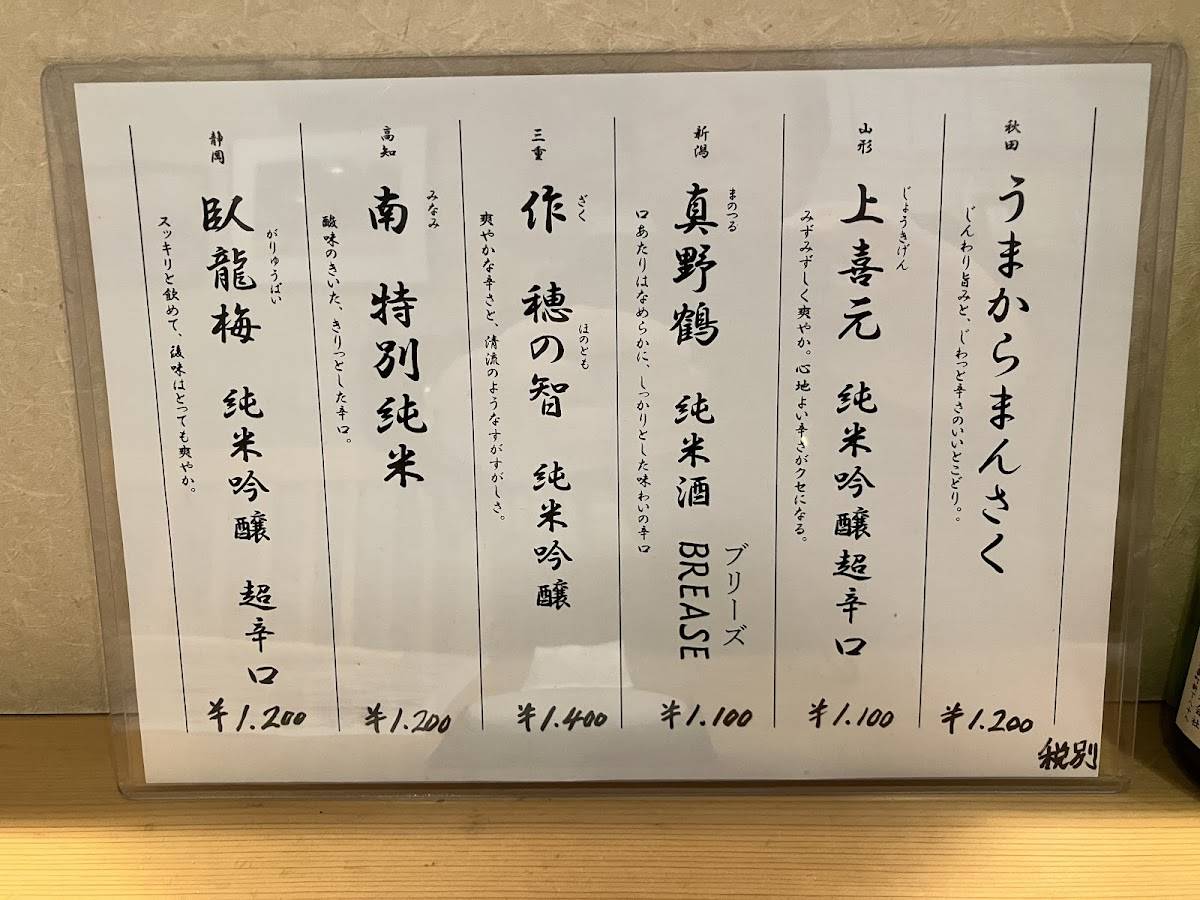 秋田
うまからまんさく
じんわり旨みと、じわっと辛さのいいとこどり。。
¥1.200
山形
じょうきげん
上喜元 純米吟醸超辛口
みずみずしく爽やか。心地よい辛さがクセになる。
¥1.100
新潟
まのつる
真野鶴 純米酒 BREASE
ブリーズ
口あたりはなめらかに、しっかりとした味わいの辛口
¥1.100
三重
ざく
ほのとも
作 穂の智 純米吟醸
爽やかな辛さと、清流のようなすがすがしさ。
¥1.400
高知
みなみ
南 特別純米
酸味のきいた、きりっとした辛口。
¥1.200
静岡
がりゅうばい
臥龍梅 純米吟醸 超辛口
スッキリと飲めて、後味はとっても爽やか。
¥1.200
税別